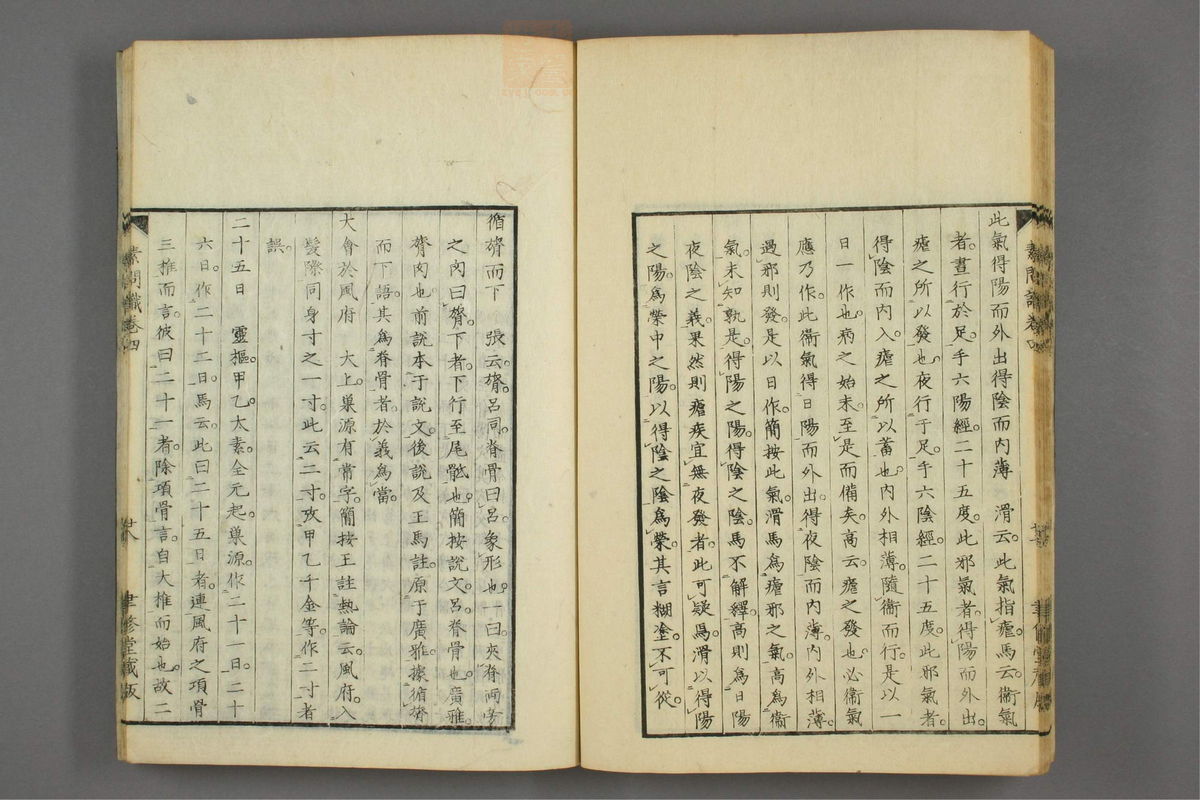 此氣得陽而外出得陰而內薄　滑云。此氣指瘧。馬云。衞氣
者。晝行於足。手六陽經。二十五度。此邪氣者。得陽而外出。
瘧之所以發也。夜行于足。手六陰經。二十五度。此邪氣者。
得陰而內入。瘧之所以蓄也。內外相薄。隨衞而行。是以一
日一作也。病之始末。至是而備矣。高云。瘧之發也。必衞氣
應乃作。此衞氣得日陽而外出。得夜陰而內薄。內外相薄。
遇邪則發。是以日作。簡按此氣。滑馬爲瘧邪之氣。高爲衞
氣。未知孰是。得陽之陽。得陰之陰。馬不解繹。高則爲日陽
夜陰之義。果然則瘧疾宜無夜發者。此可疑焉。滑以得陽
之陽。爲榮中之陽。以得陰之陰爲榮。其言糊塗。不可從。
素問識卷四
循膂而下　張云。膂。呂同。脊骨曰呂。象形也。一曰。夾脊兩旁
之內曰膂。下者。下行至尾骶也。簡按說文。呂。脊骨也。廣雅。
膂。肉也。前說本于說文。後說及王馬註。原于廣雅。據循膂
而下語。其爲脊骨者。於義爲當。
大會於風府　大上。巢源有常字。簡按王註熱論云。風府。入
髮際同身寸之一寸。此云二寸。攷甲乙千金等。作二寸者
誤。
二十五日　靈樞。甲乙。太素。全元起。巢源。作二十一日。二十
六日。作二十二日。馬云。此曰二十五日者。連風府之項骨
三椎而言。彼曰二十一者。除項骨言。自大椎而始也。故二
素問識卷四
廿八
聿修堂藏版